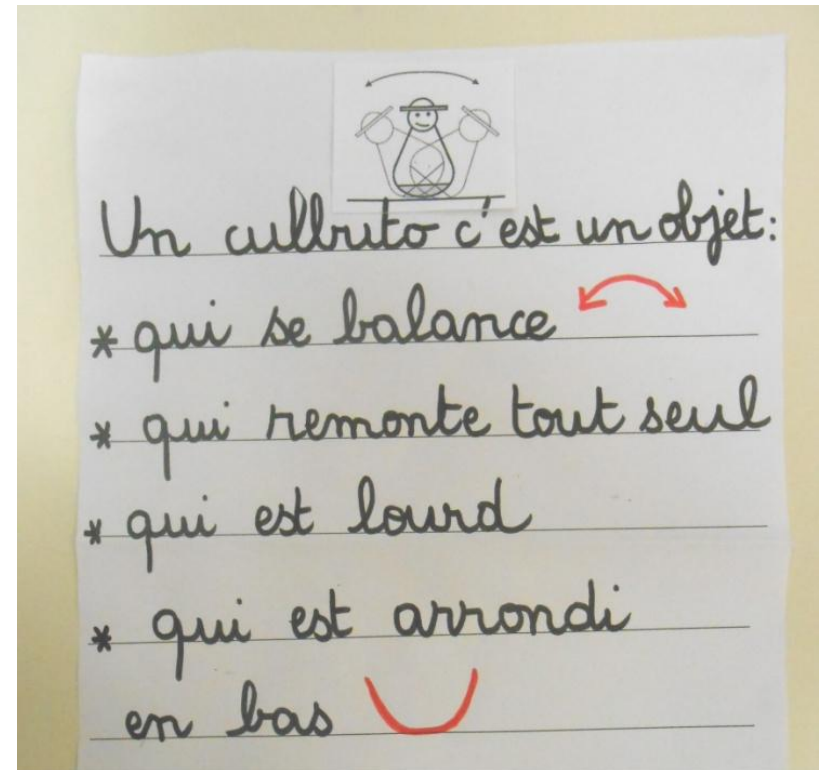 Un culbuto c'est un objet:
* qui se balance
* qui remonte tout seul
* qui est lourd
* qui est arrondi
en bas